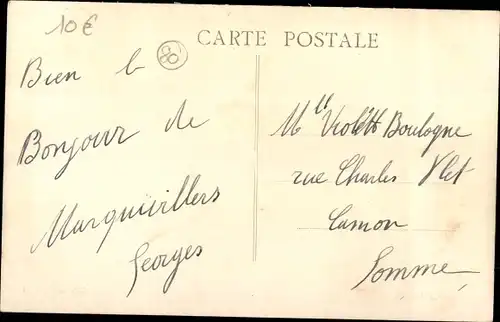 10€
80
CARTE POSTALE
Bien le
Bonjour de
Marquivillers
Georges
Mlle Violette Boulogne
rue Charles
Camon
Somme